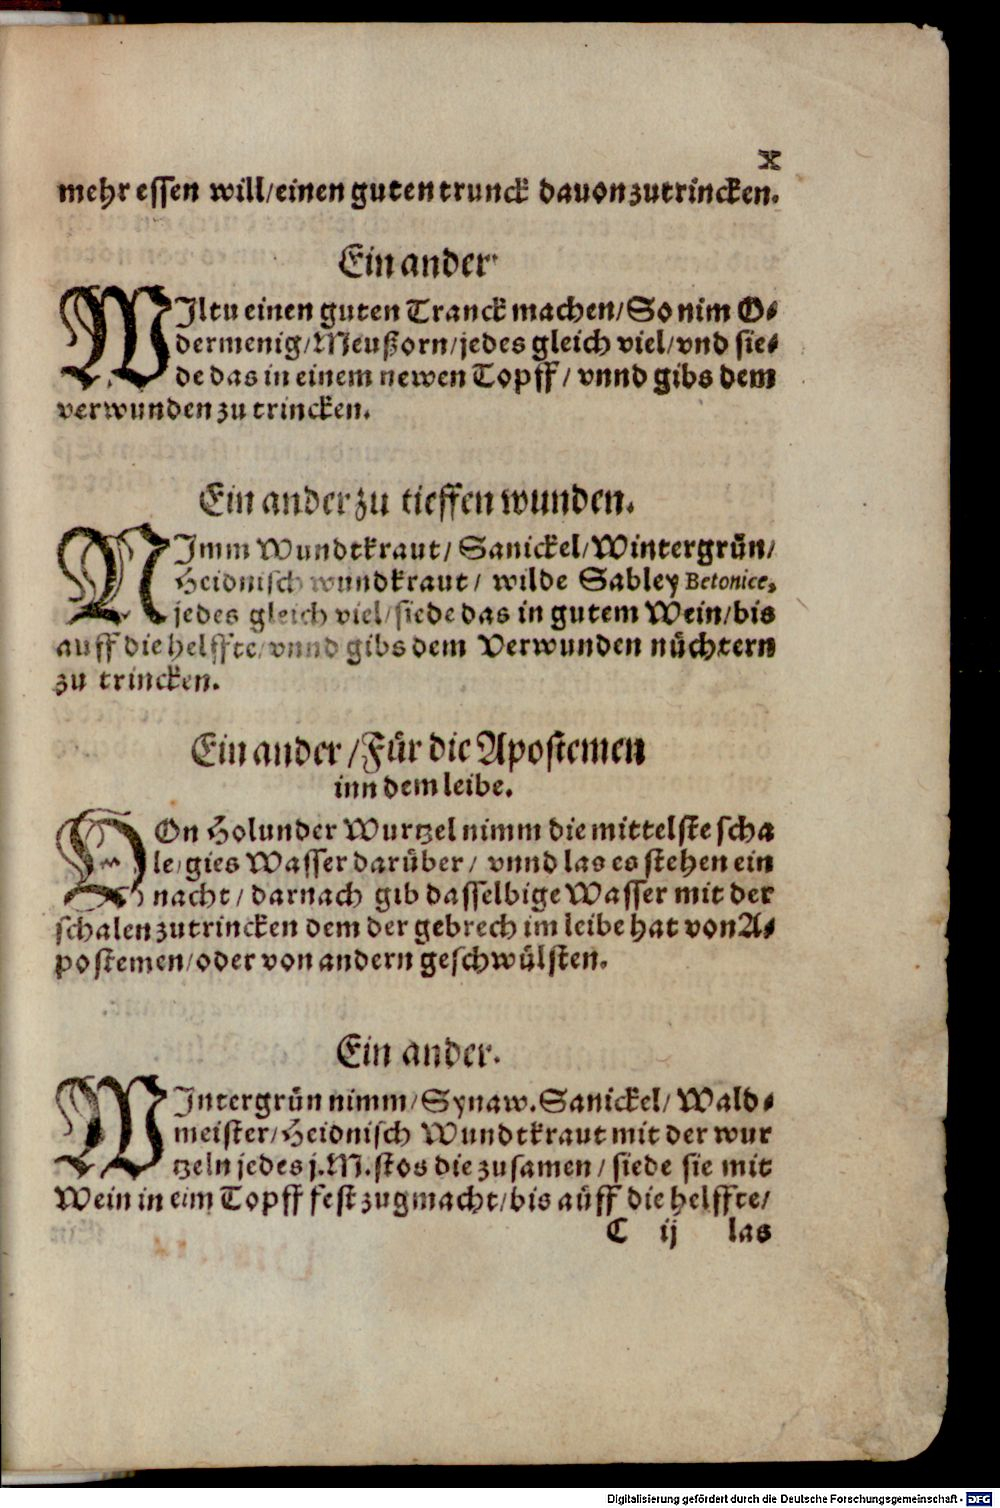 X
mehr essen will/einen guten trunck dauon zutrincken.
Ein ander
WIltu einen guten Tranck machen/So nim O⸗
dermenig/Meußorn/jedes gleich viel/vnd sie⸗
de das in einem newen Topff/ vnnd gibs dem
verwunden zu trincken.
Ein ander zu tieffen wunden.
NImm Wundtkraut/ Sanickel/Wintergrün/
Heidnisch wundkraut/ wilde Sabley Betonice,
jedes gleich viel/siede das in gutem Wein/bis
auff die helffte/vnnd gibs dem Verwunden nüchtern
zu trincken.
Ein ander/Für die Apostemen
inn dem leibe.
VOn Holunder Wurtzel nimm die mittelste scha
le/gies Wasser darüber/ vnnd las es stehen ein
nacht/ darnach gib dasselbige Wasser mit der
schalen zutrincken dem der gebrech im leibe hat von A⸗
postemen/oder von andern geschwülsten.
Ein ander.
WIntergrün nimm/Synaw. Sanickel/ Wald⸗
meister/Heidnisch Wundtkraut mit der wur
tzeln jedes j.M.stos die zusamen/ siede sie mit
Wein in eim Topff fest zugmacht/bis aüff die helffte/
C ij las
Digitalisierung gefördert durch die Deutsche Forschungsgemeinschaft - DFG